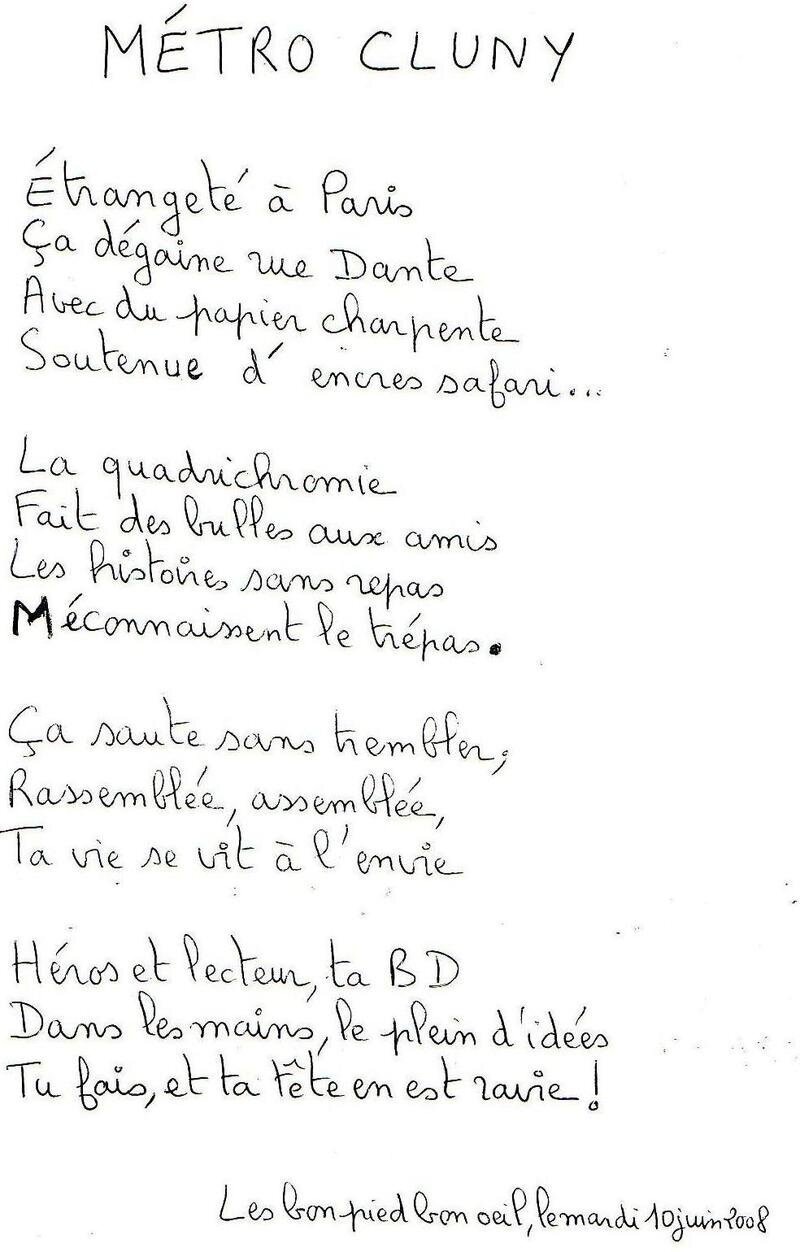 MÉTRO CLUNY
Étrangeté à Paris
Ça dégaine rue Dante
Avec du papier charpente
Soutenue d'encres safari...
La quadrichromie
Fait des bulles aux amis
Les histoires sans repas
Méconnaissent le trépas.
Ça saute sans trembler,
Rassemblée, assemblée,
Ta vie se vit à l'envie
Héros et lecteur, ta BD
Dans les mains, le plein d'idées
Tu fais, et ta tête en est ravie !
Les bon pied bon oeil, le mardi 10 juin 2008